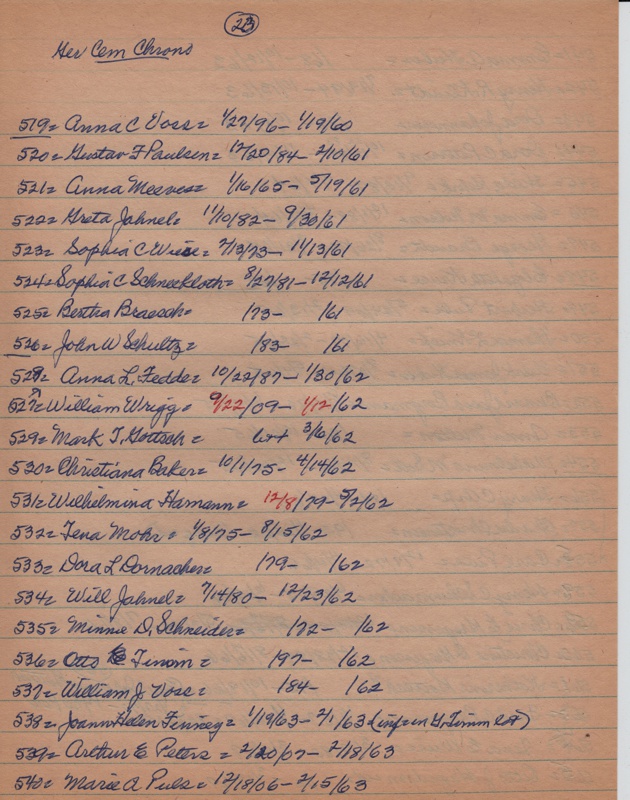 23
Ger Cem Chrono
519= Anna C Voss= 1/27/96- 1/19/60
520= Gustav F Paulsen= 12/20/84- 2/10/61
521= Anna Meeves= 1/16/65- 5/19/61
522= Greta Jahnel= 11/10/82- 9/30/61
523= Sophia C Wiese= 7/13/73- 11/13/61
524= Sophia C Schneekloth= 8/27/81- 12/12/61
525= Bertha Braesch= /73- /61
526= John W Schultz= /83- /61
528= Anna L. Fedde= 10/22/87- 1/30/62
527= William Wrigg= 9/22/09- 1/12/62
529= Mark T. Gottsch= 3/6/62
530= Christiana Baker= 10/1/75- 4/14/62
531= Wilhelmina Hamann= 12/8/79- 5/2/62
532= Tena Mohr= 1/8/75- 8/15/62
533= Dora L Dornacher= /79- /62
534= Will Jahnel= 7/14/80- 12/23/62
535= Minnie D. Schneider= /72- /62
536= Otto E Timm= /97- /62
537= William J. Voss= /84- /62
538= Joann Helen Finney= 1/19/63- 2/1/63 (inf= in G. Timm lot)
539= Arthur E Peters= 2/20/07- 2/18/63
540= Marie A Puls= 12/18/06- 2/15/63